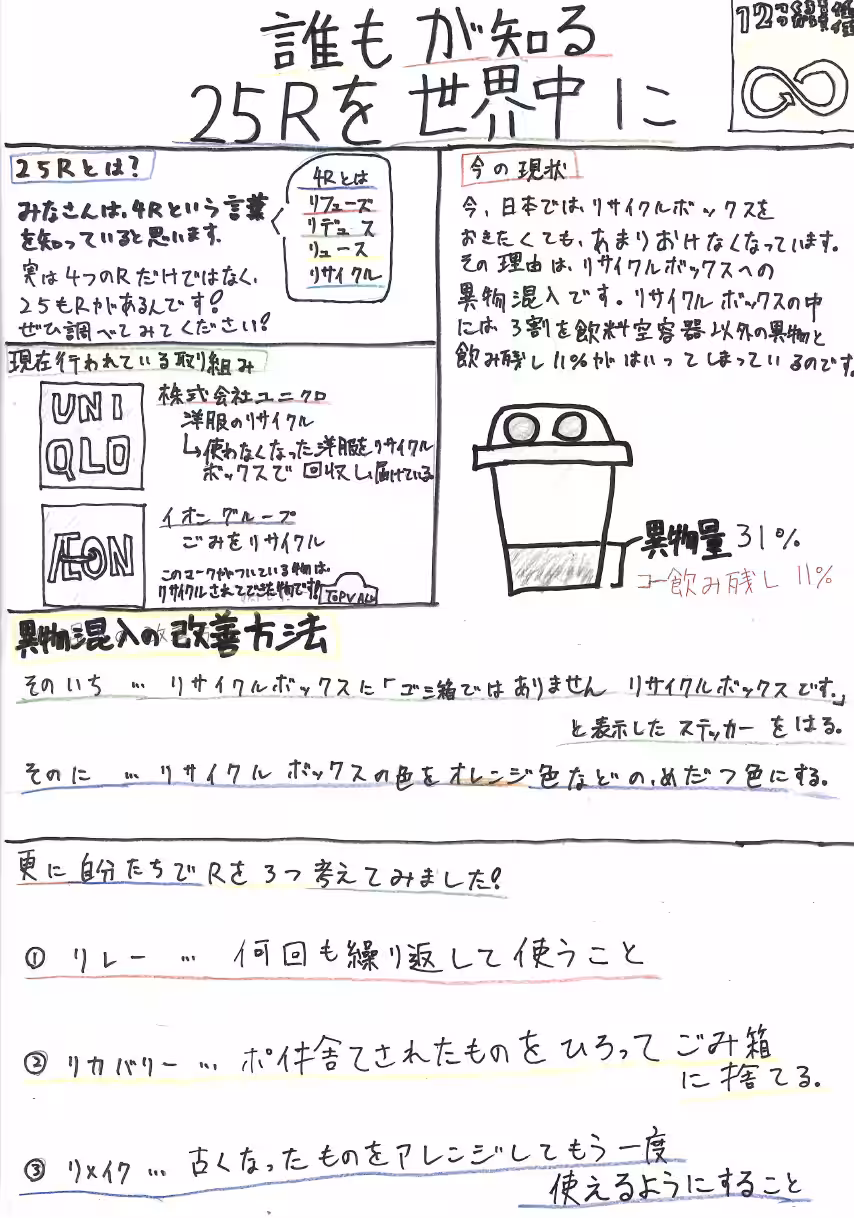 誰もが知る
25Rを世界中に
12 つくる責任
つかう責任
25Rとは?
みなさんは、4Rという言葉
を知っていると思います。
実は4つのRだけではなく、
25もRがあるんです!
ぜひ調べてみてください!
4Rとは
リフューズ
リデュース
リュース
リサイクル
今の現状
今、日本では、リサイクルボックスを
おきたくても、あまりおけなくなっています。
その理由は、リサイクルボックスへの
異物混入です。リサイクルボックスの中
には、3割を飲料空容器以外の異物と
飲み残し11%がはいってしまっているのです。
異物量31%
飲み残し11%
現在行われている取り組み
UNI
QLO
株式会社ユニクロ
洋服のリサイクル
↳使わなくなった洋服をリサイクル
ボックスで回収し、届けている。
ÆON
イオングループ
ごみをリサイクル
このマークがついている物は、
リサイクルされてできた物です!
TOPVALU
異物混入の改善方法
そのいち…リサイクルボックスに「ゴミ箱ではありません リサイクルボックスです。」
と表示したステッカーをはる。
そのに…リサイクルボックスの色をオレンジ色などの、めだつ色にする。
更に自分たちでRを3つ考えてみました!
① リレー…何回も繰り返して使うこと
② リカバリー…ポイ捨てされたものをひろってごみ箱
に捨てる。
③ リメイク…古くなったものをアレンジしてもう一度
使えるようにすること